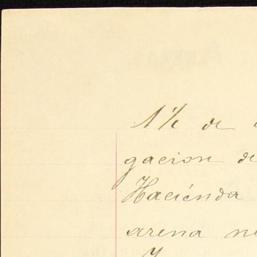 1% de
gacion de
Hacienda
arena